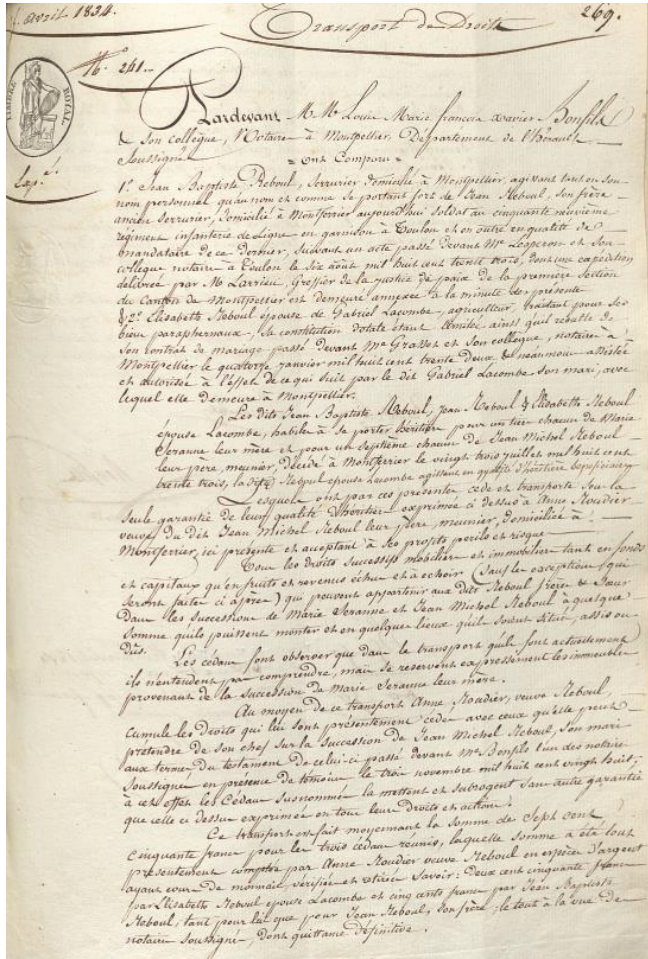 avril 1834.
Transport de Droits
269.
N.° 241.
TIMBRE ROYAL
Exp.é
Pardevant M.e M.e Louis Marie françois xavier Bonfils
& Son collègue, Notaires à Montpellier, Département de l'hérault
Soussignés
= ont Comparu =
1.° Jean Baptiste Reboul, Serrurier domicilié à Montpellier, agissant tant en son
nom personnel qu'au nom et comme se portant fort de Jean Reboul, son frère
ancien serrurier, domicilié à Montferrier aujourd'hui soldat au cinquante neuvième
régiment infanterie de Ligne en garnison à Toulon et en outre en qualité de
mandataire de ce dernier, suivant un acte passé devant M.e Lesperon et son
collègue notaires à Toulon le six août mil huit cent trente trois, dont une expédition
délivrée par M. Larrieu, Greffier de la justice de paix de la première Section
du Canton de Montpellier est demeurée annexée à la minute des présentes
& 2.° Elisabeth Reboul épouse de Gabriel Lacombe, agriculteur, traitant pour ses
biens paraphernaux, sa constitution dotale étant limitée ainsi qu'il résulte de
Son contrat de mariage passé devant M.e Grasset et Son collègue, notaires à
Montpellier le quatorze janvier mil huit cent trente deux, & néanmoins assistée
et autorisée à l'effet de ce qui suit par le dit Gabriel Lacombe son mari, avec
lequel elle demeure à Montpellier.
Les dits Jean Baptiste Reboul, Jean Reboul & Elisabeth Reboul
épouse Lacombe, habiles à se porter héritiers pour un tiers chacun de Marie
Seranne leur mère et pour un septième chacun de Jean Michel Reboul
leur père, meunier, décédé à Montferrier le vingt trois juillet mil huit cent
trente trois, la dite Reboul épouse Lacombe agissant en qualité d'héritière bénéficiaire
Lesquels ont par ces présentes cédé et transporté sous la
seule garantie de leur qualité d'héritiers exprimée ci dessus à Anne Roudier
veuve du dit Jean Michel Reboul leur père, meunier, domiciliée à
Montferrier, ici présente et acceptant à ses profits périls et risques
Tous les droits successifs mobiliers et immobiliers tant en fonds
et capitaux qu'en fruits et revenus échus et à échoir (sauf les exceptions qui
seront faites ci après) qui peuvent appartenir aux dits Reboul frères & Sœur
dans les successions de Marie Seranne et Jean Michel Reboul à quelque
somme qu'ils puissent monter et en quelques lieux qu'ils soient situés, assis ou
dûs.
Les cédans font observer que dans le transport qu'ils font actuellement
ils n'entendent pas comprendre, mais se réservent expressément les immeubles
provenant de la succession de Marie Seranne leur mère.
Au moyen de ce transport Anne Roudier, veuve Reboul,
cumule les droits qui lui sont présentement cédés avec ceux qu'elle peut
prétendre de son chef sur la succession de Jean Michel Reboul, son mari
aux termes du testament de celui-ci passé devant M.e Bonfils l'un des notaires
soussignés en présence de témoins le trois novembre mil huit cent vingt huit;
à cet effet les Cédans susnommés la mettent et subrogent sans autre garantie
que celle ci dessus exprimée en tous leurs droits et actions.
Ce transport est fait moyennant la somme de Sept cent
cinquante francs pour les trois cédans réunis, laquelle somme a été tout
présentement comptée par Anne Roudier veuve Reboul en espèces d'argent
ayant cours de monnaie, vérifiée et retirée Savoir: Deux cent cinquante francs
par Elisabeth Reboul épouse Lacombe et cinq cents francs par Jean Baptiste
Reboul, tant pour lui que pour Jean Reboul, son frère; le tout à la vue de
notaires soussignés, dont quittance définitive.